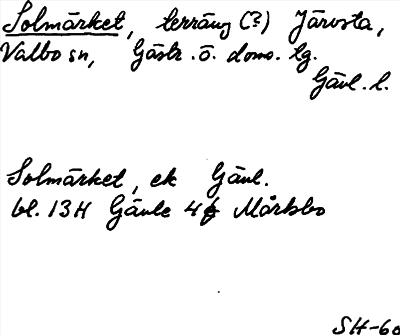 Solmärket, terräng (?) Järvsta,
Valbo sn, Gästr. ö. doms. lg.
Gävl. l.
Solmärket, ek Gävl.
bl. 13H Gävle 4 Mårtsbo
SH-60